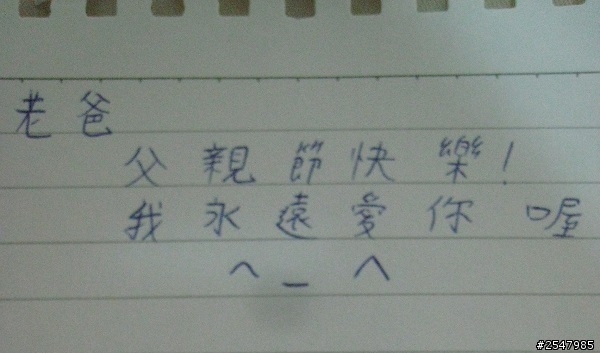 老爸
父親節快樂!
我永遠愛你喔
^_^
#2547985